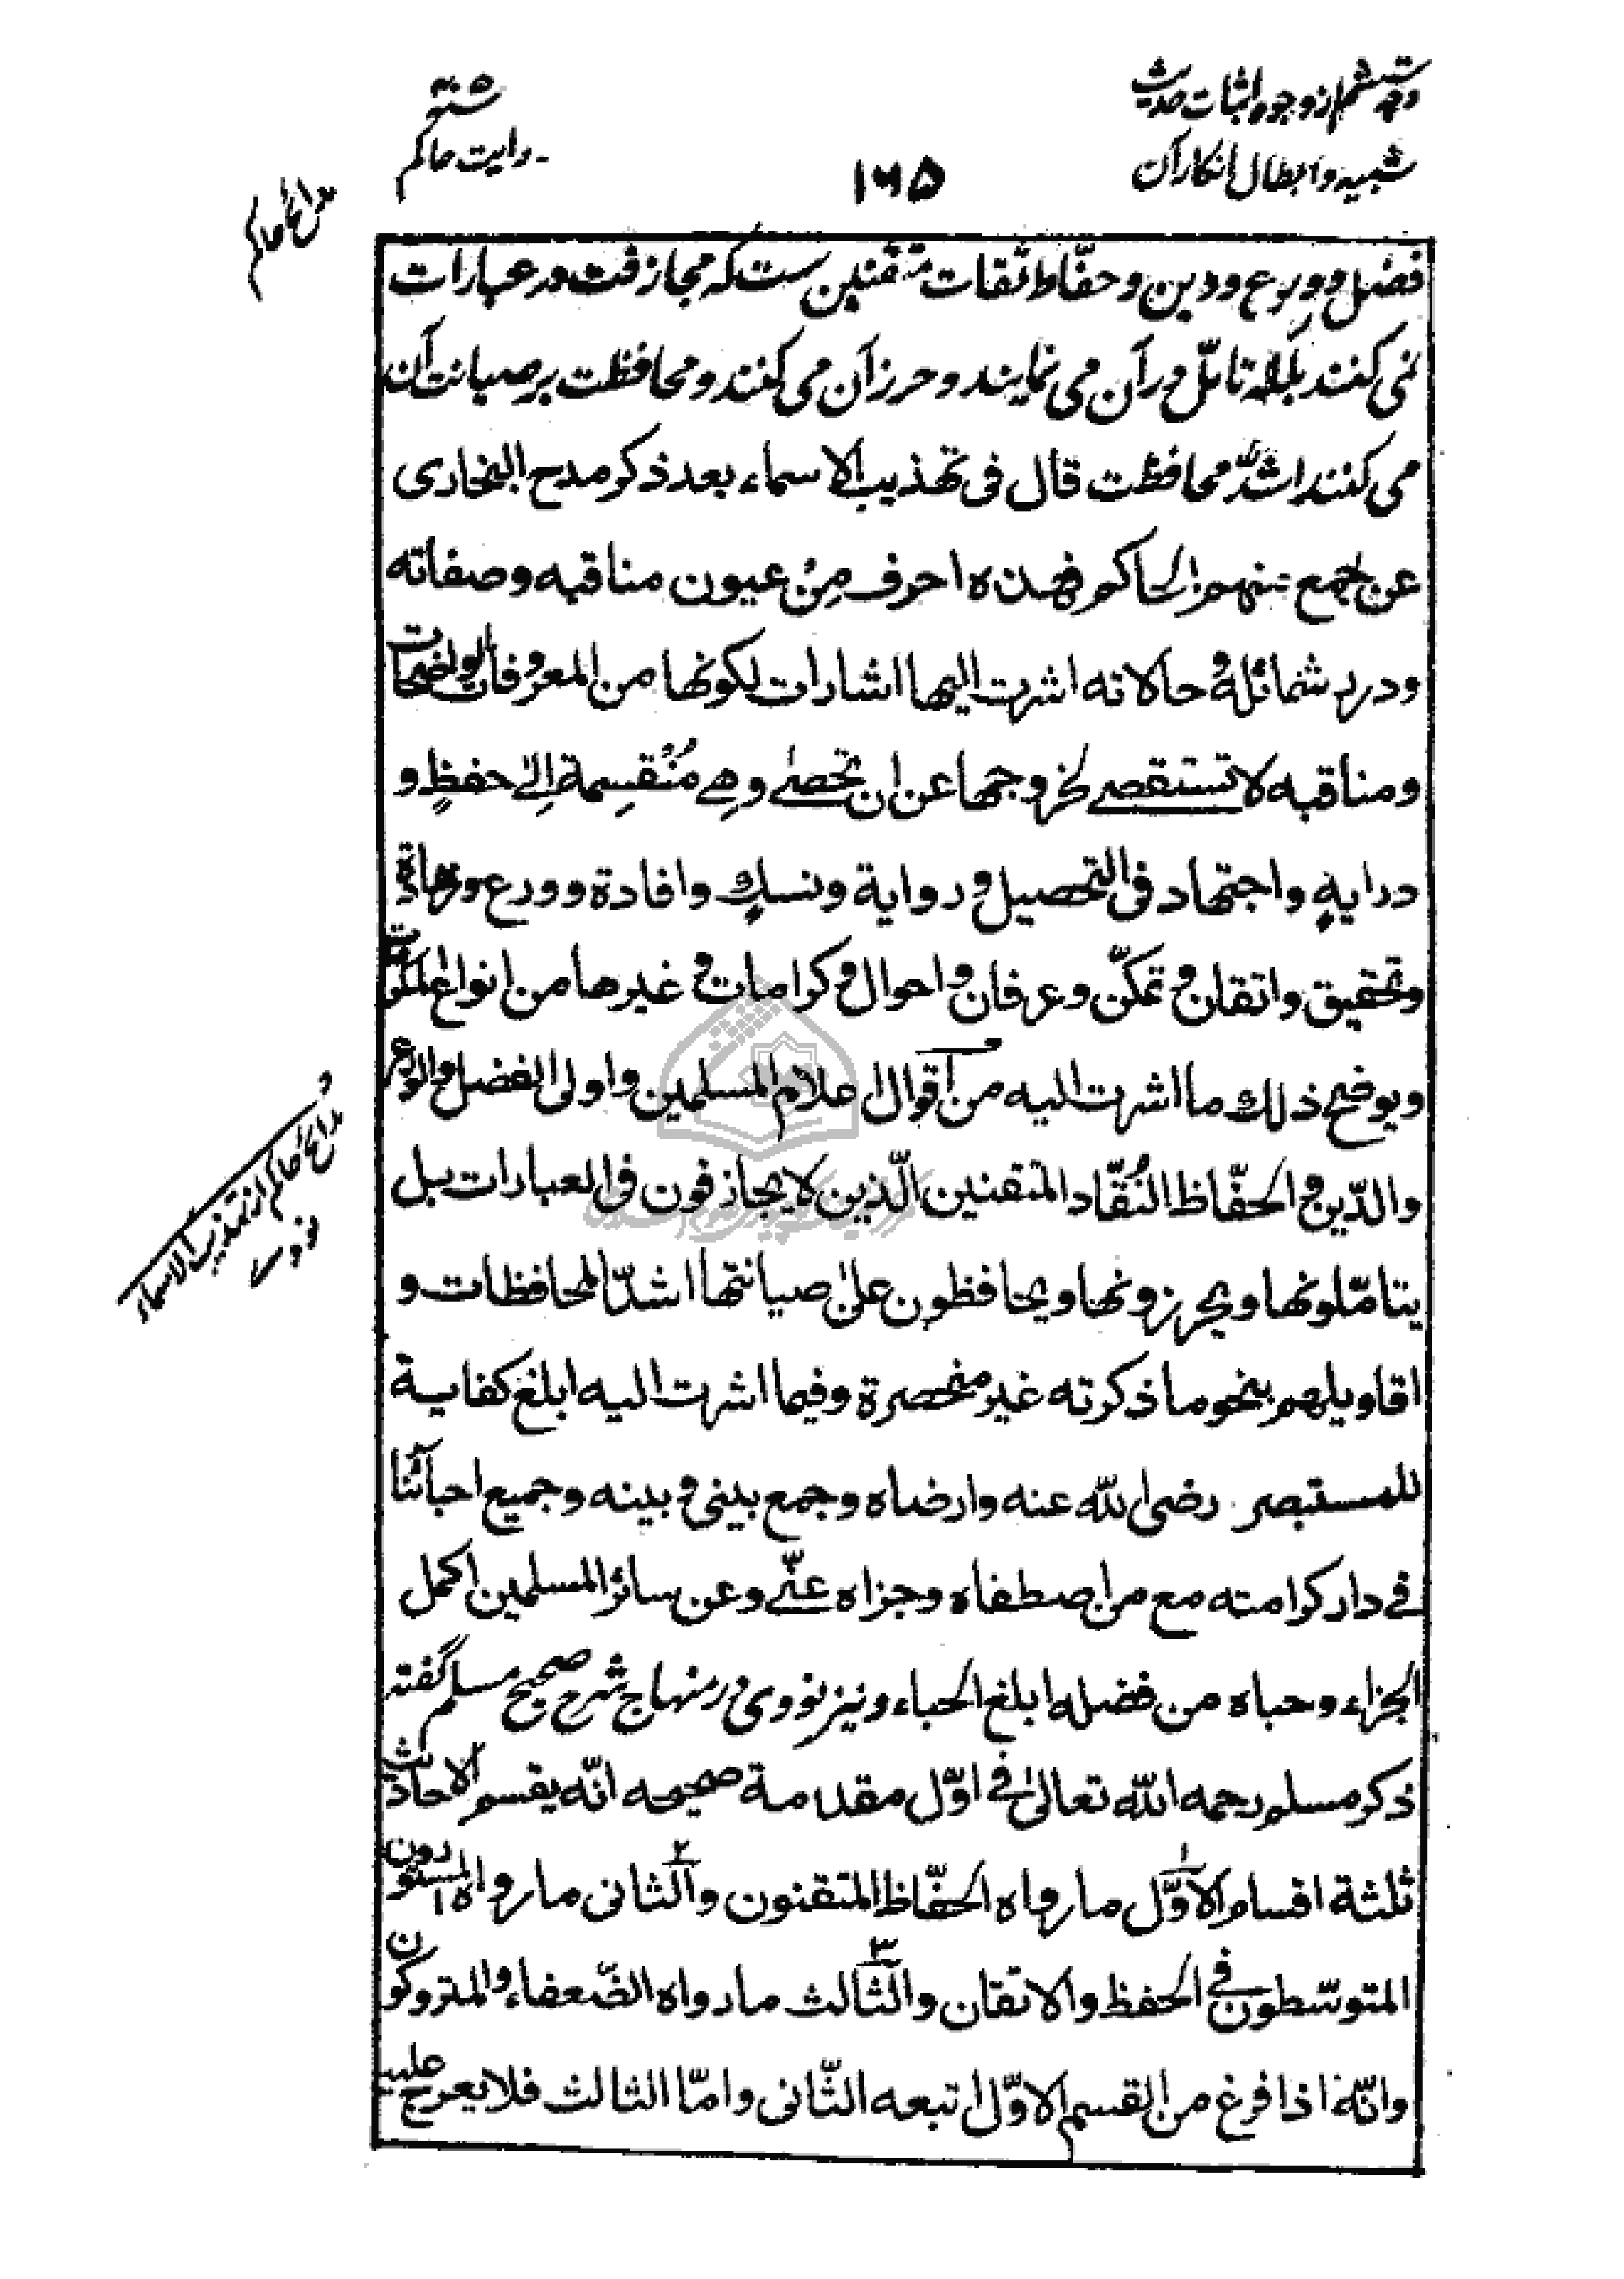 وجه ششم از وجوه اثبات حدیث
شبیه و ابطال انکار آن
۱۶۵
روایت حاکم
مدائح حاکم
فضل و ورع و دین و حفّاظ ثقات متقنین ست که مجازفت در عبارات
نمی کنند بلکه تامّل در آن می نمایند و حرز آن می کنند و محافظت بر صیانت آن
می کنند اشدّ محافظت قال فی تهذیب الاسماء بعد ذکر مدح البخاری
عن جمع منهم الحاکم فهذه احرف مِن عیون مناقبه و صفاته
و درر شمائله و حالاته اشرت الیها اشارات لکونها من المعروفات الواضحات
و مناقبه لا تستقصے لخروجها عن ان تحصےٰ وهے مُنْقسِمة اِلیٰ حفظٍ و
درایهٍ و اجتهاد فی التحصیل و روایة و نسكٍ و افادة و ورع و زهادة
و تحقیق و اتقان و تمکّن و عرفان و احوال و کرامات و غیرها من انواع المکرمات
و یوضح ذلك ما اشرت الیه من اقوال اعلام المسلمین و اولی الفضل و الورع
و الدّین و الحفّاظ النُقّاد المتقنین الّذین لا یجازفون فی العبارات بل
یتامّلونها و یحرزونها و یحافظون علیٰ صیانتها اشدّ المحافظات و
اقاویلهم بنحو ما ذکرته غیر منحصرة و فیما اشرت الیه ابلغ کفایة
للمستبصر رضی اللّه عنه و ارضاه و جمع بینی و بینه و جمیع احبائنا
فے دار کرامته مع من اصطفاه و جزاه عنّے و عن سائر المسلمین اکمل
الجزاء و حباه من فضله ابلغ الحباء و نیز نووی در منهاج شرح صحیح مسلم گفته
ذکر مسلم رحمه اللّه تعالیٰ فے اوّل مقدمة صحیحه انّه یقسم الاحادیث
ثلثة اقسام الاوّل ما رواه الحفّاظ المتقنون و الثانی ما رواه المستورون
المتوسّطون فے الحفظ و الاتقان و الثّالث ما رواه الضّعفاء و المتروکون
و انّه اذا فرغ من القسم الاوّل اتبعه الثّانی و امّا الثالث فلا یعرج علیه
مدائح حاکم از تهذیب الاسماء
نووے